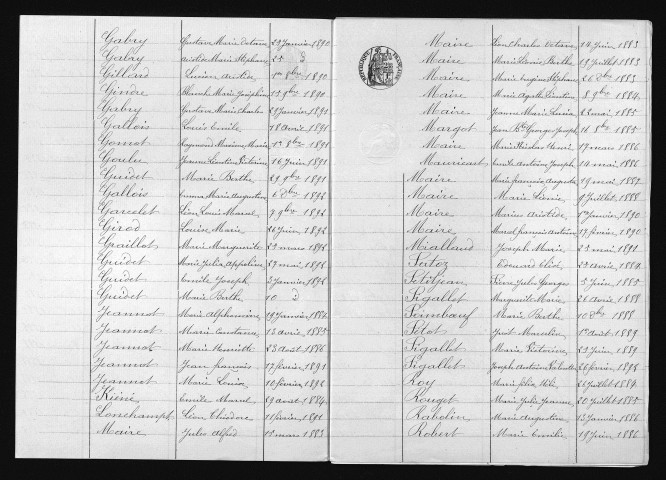 Gabry Gustave Marie Octave 23 Janvier 1890
Gabry Aristide Marie Stéphane 25 d
Gillard Lucien Aristide 1er 8bre 1890
Gindre Blanche Marie Joséphine 15 9bre 1890
Gabry Gustave Marie Charles 29 Janvier 1891
Gallois Louis Emile 18 Avril 1891
Gonnot Raymond Marie 1er 8bre 1891
Goulu Jeanne Léontine Victorine 16 Juin 1891
Guidet Marie Berthe 29 9bre 1891
Gallois Emma Marie Augustine 6 Dbre 1892
Gavelet Léon Louis Marcel 7 9bre 1892
Girod Louise Marie 26 Juin 1892
Graillot Marie Marguerite 23 mars 1892
Guidet Marie Julia Appoline 27 mai
Guidet Emile Joseph 3 Janvier
Guidet Marie Berthe 10 d
Jeannot Marie Alphonsine 19 Janvier
Jeannot Marie Constance 13 avril 1885
Jeannot Marie Henriette 23 Août 1886
Jeannot Jean François 17 février 1891
Jeannot Marie Louise 10 février 1892
Kiéné Emile Marcel 29 avril 1884
Lonchampt Léon Théodore 11 février
Maire Jules Alfred 15 mars 1883
Maire Léon Charles Octave 14 Juin 1883
Maire Marie Léonie Berthe 19 Juillet 1883
Maire Marie Eugène Stéphane 26 Dbre 1883
Maire Marie Agathe Léontine 8 9bre 1884
Maire Jeanne Marie Lucie 25 mai 1885
Margot Jean Bte Georges Joseph 11 8bre 1885
Maire Marie Nicolas Henri 17 mars 1886
Emile Antoine Joseph 14 mai 1886
Maire Marie françois Auguste 19 mai 1887
Maire Marie Léonie 9 Juillet 1888
Maire Marius Aristide 1er Janvier 1890
Maire Marcel francis Antoine 17 février 1890
Mialland Joseph Marie 23 mai 1891
Edouard 23 avril 1884
Petitjean Pierre Jules Georges 5 Juin 1885
Pigallet Marguerite Marie 26 Avril 1888
Marie Berthe 10 Dbre 1888
Petot Just Marcelin 1er août 1889
Pigallet Marie Victorine 23 Juin 1889
Pigallet Joseph Antoine 26 février
Roy Marie Julia 26 Juillet 1884
Rouget Marie Julie Jeanne 20 Juillet 1885
Marie Augustine 13 Janvier 1886
Robert Marie Emilie 19 Juin 1886